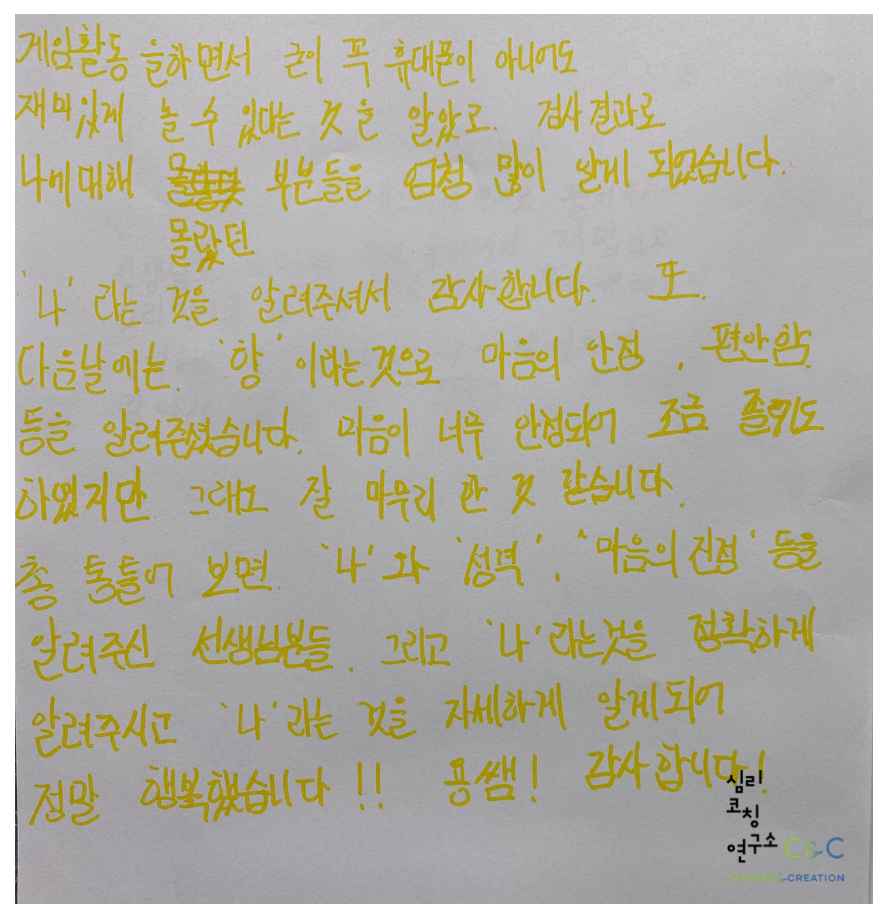 게임활동 을하면서 굳이 꼭 휴대폰이 아니어도
재미있게 놀 수 있다는 것을 알았고. 검사결과로
나에대해 부분들을 엄청 많이 알게 되었습니다.
몰랐던
'나' 라는 것을 알려주셔서 감사합니다. 또.
다음날에는. '향' 이라는것으로 마음의 안정, 편안함.
등을 알려주셨습니다. 마음이 너무 안정되어 조금 졸기도
하였지만 그래도 잘 마무리 한 것 같습니다.
총 통틀어 보면. '나'와 '성격', "마음의 진정' 등을
알려주신 선생님분들. 그리고 '나'라는것을 정확하게
알려주시고 '나'라는 것을 자세하게 알게되어
정말 행복했습니다!! 용쌤! 감사합니다!
심리
코칭
연구소 C&C
-CREATION